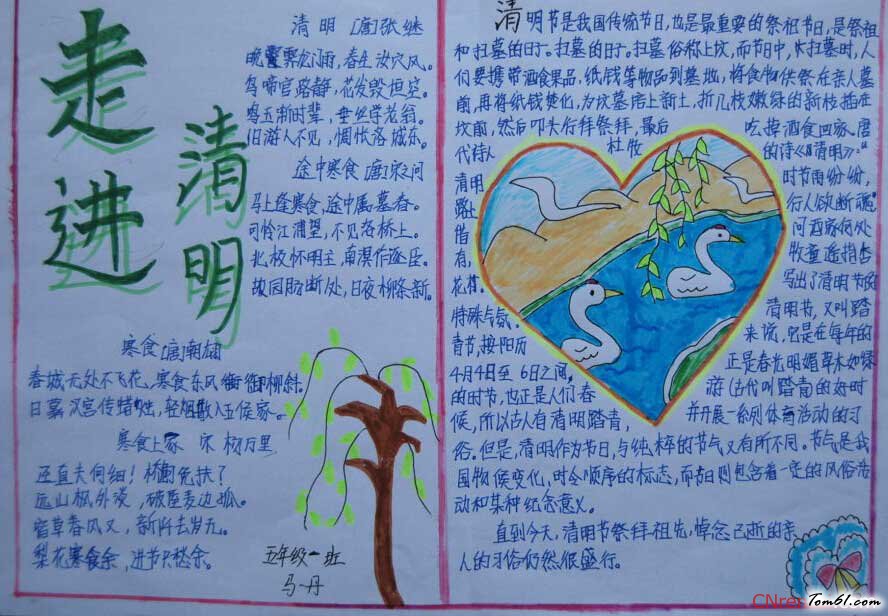 走进
清明
清明 [唐]张继
晚霁龙门雨,春生汝穴风。
鸟啼官路静,花发毁垣空。
鸣玉惭时辈,垂丝学老翁。
旧游人不见,惆怅洛城东。
途中寒食 [唐]宋之问
马上逢寒食,途中属暮春。
可怜江浦望,不见洛桥上。
北极怀明主,南溟作逐臣。
故园肠断处,日夜柳条新。
寒食 [唐]
春城无处不飞花,寒食东风御柳斜。
日暮汉宫传蜡烛,轻烟散入五侯家。
寒食上冢 宋 杨万里
迳直夫何细!桥危免扶?
远山枫外淡,破屋麦边孤。
宿草春风又,新阡去岁无。
梨花寒食余,进节只愁余。
五年级一班
马丹
清明节是我国传统节日,也是最重要的祭祖节日,是祭祖
和扫墓的日子。扫墓的日子。扫墓俗称上坟,而节日中,扫墓时,人
们要携带酒食果品、纸钱等物品到墓地,将食物供祭在亲人墓
前,再将纸钱焚化,为坟墓培上新土,折几枝嫩绿的新枝插在
坟前,然后叩头行拜祭拜,最后 吃掉酒食回家。唐
代诗人 杜牧 的诗《清明》:"
清明 时节雨纷纷,
路上 行人欲断魂。
借 问酒家何处
有, 牧童遥指杏
花村。 写出了清明节的
特殊气氛。 清明节,又叫踏
青节,按阳历 来说,它是在每年的
4月4日至6日之间, 正是春光明媚草木如绿
的时节,也正是人们春 游(古代叫踏青)的好时
候,所以古人有清明踏青, 并开展一系列体育活动的习
俗。但是,清明作为节日,与纯粹的节气又有所不同。节气是我
国物候变化,时令顺序的标志,而节日则包含着一定的风俗活
动和某种纪念意义。
直到今天,清明节祭拜祖先,悼念已逝的亲
人的习俗仍然很盛行。
Tom61.com